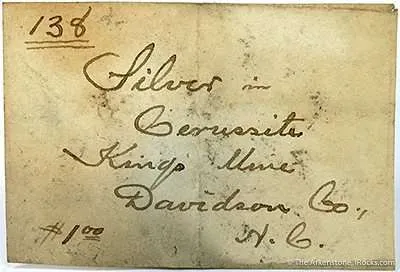 138
Silver in
Cerussite
Kings Mine
Davidson Co.,
$1.00 N.C.
© The Arkenstone, iRocks.com